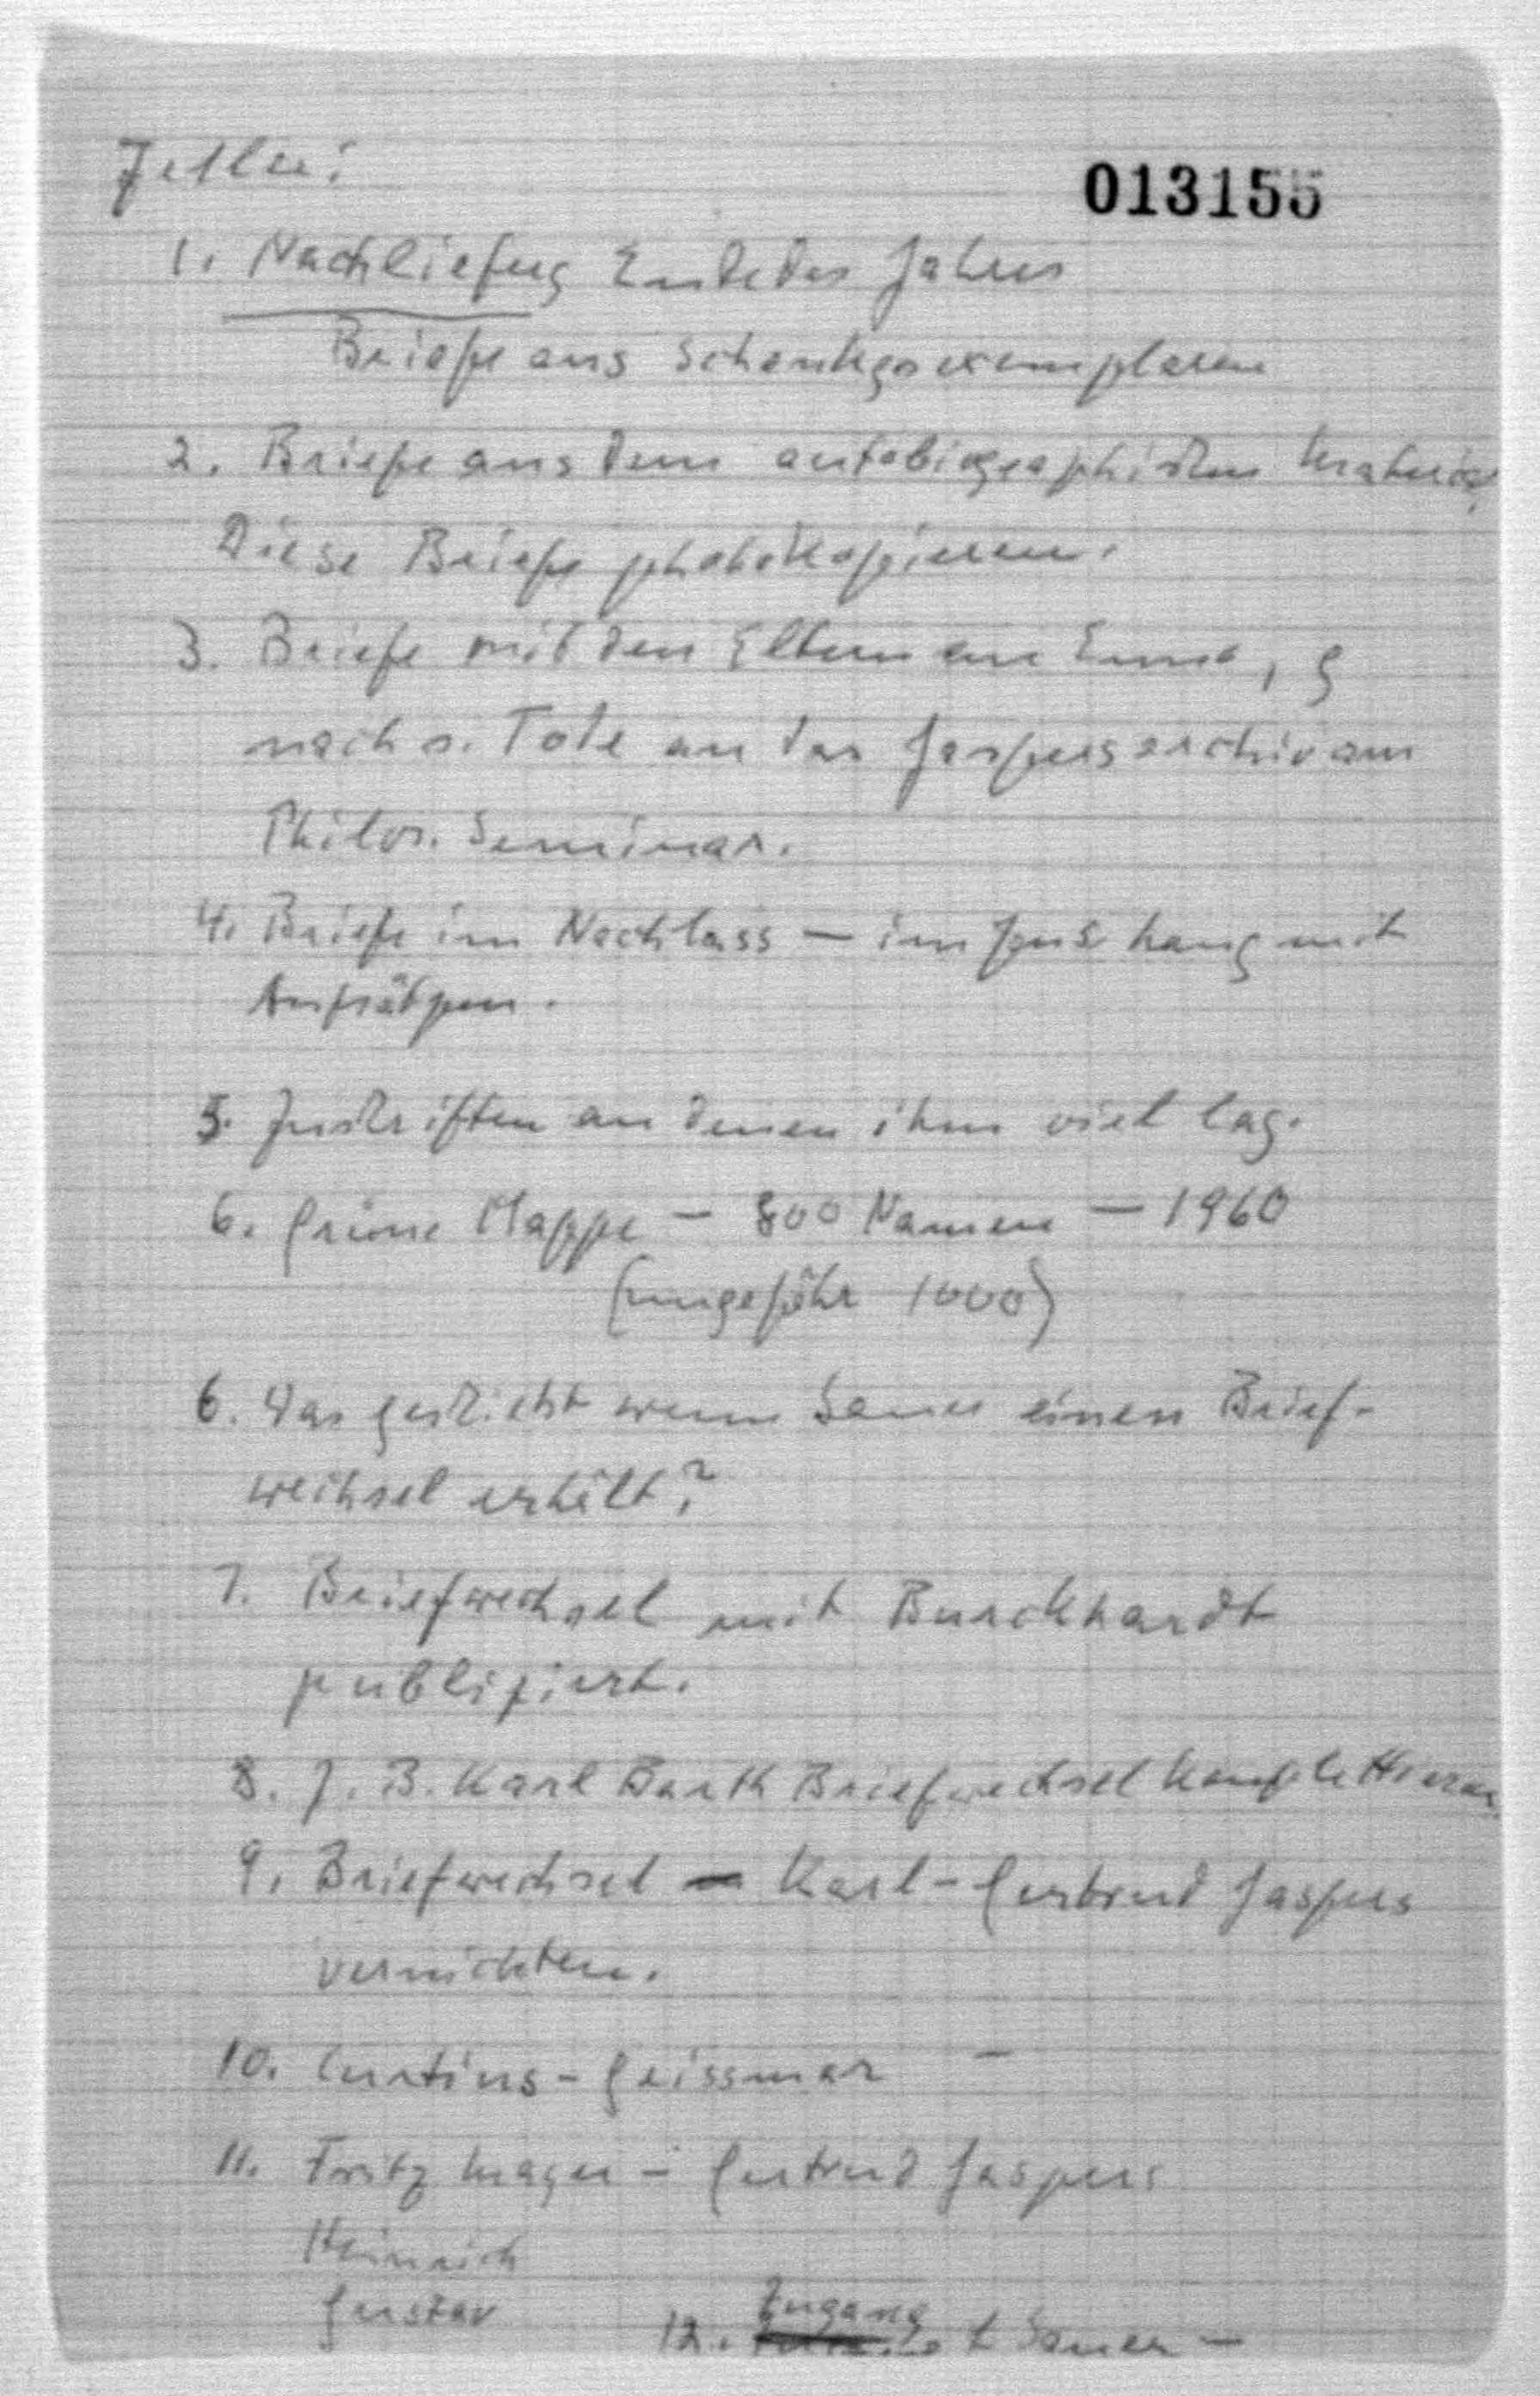 Zeller:
013155
1. Nachliefug Ende des Jahres
Briefe aus Schenkgsexemplaren
2. Briefe aus dem autobiographischen Material
Diese Briefe photokopieren.
3. Briefe mit den Eltern an Ernst,
nach s. Tode an das Jaspersarchiv am
Philos. Seminar.
4. Briefe im Nachlass – im Zus.hang mit
Aufsätzen.
5. Zuschriften an denen ihm viel lag.
6. Grüne Mappe – 800 Namen – 1960
(ungefähr 1000)
6. Was geschieht wenn Saner einen Brief-
wechsel erhält?
7. Briefwechsel mit Burckhardt
publiziert.
8. Z. B. Karl Barth Briefwechsel komplettieren
9. Briefwechsel – Karl – Gertrud Jaspers
vernichten.
10. Curtius – Geissmar –
11. Fritz Mayer – Gertrud Jaspers
Heinrich
Gustav
12. Zugang Saner –